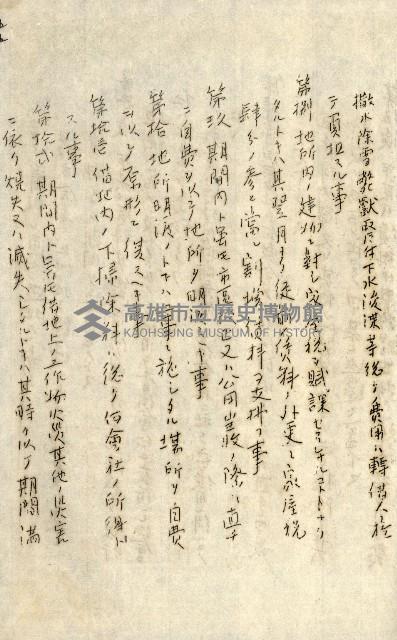 撤水除雪斃獸取片付下水浚渫等総テ費用ハ轉借人ニ於
テ負担スル事
第捌 地所内ノ建物ニ對シ家税ヲ賦課セラルルコトトナリ
タルトキハ其翌月ヨリ従前賃料ノ外更ニ家産税
肆分ノ参ニ當ル割換賃料ヲ支拂フ事
第玖 期間内ト雖モ市区 又ハ公用買收ノ際ハ直チ
ニ自費ヲ以テ地所ヲ明渡ス事
第拾 地所明渡ノトキハ 施シタル場所ヲ自費
ヲ以テ原形ニ復スヘキ事
第拾壱 借地内ノ下掃除料ハ総テ何會社ノ所得ト
スル事
第拾弐 期間内ト雖モ借地上ノ工作物火災其他ノ災害
ニ依リ焼失又ハ滅失シタルトキハ其時ヲ以テ期間満
高雄市立歷史博物館
KAOHSIUNG MUSEUM OF HISTORY